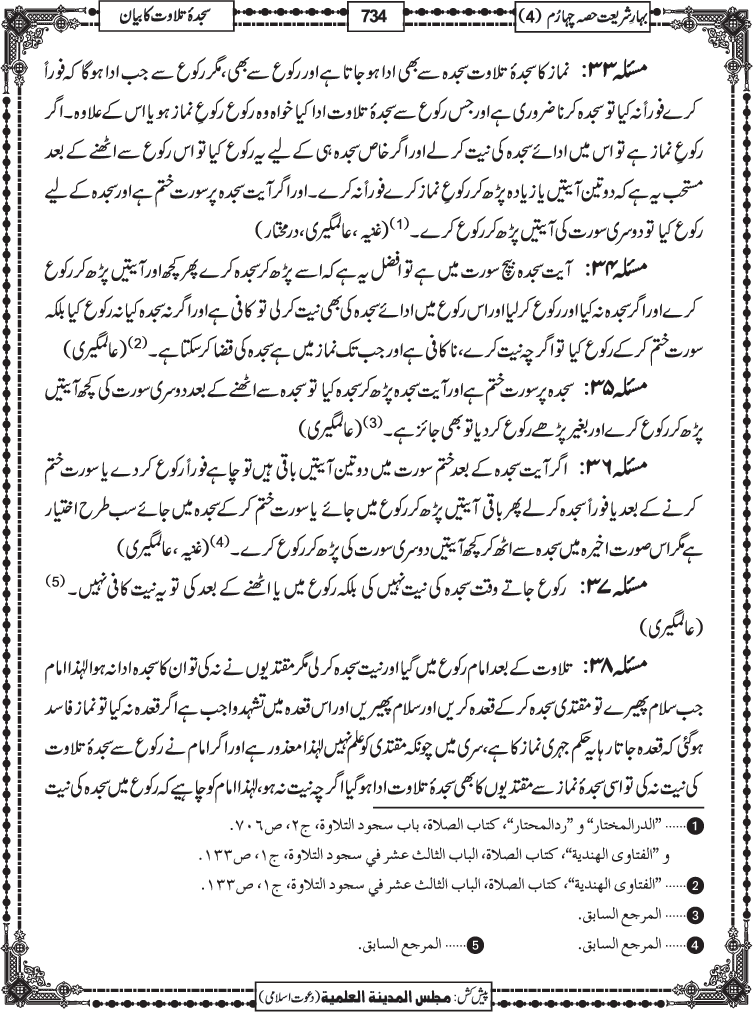 بہار شریعت حصہ چہارم (4)
734
سجدۂ تلاوت کا بیان
مسئلہ ۳۳: نماز کا سجدۂ تلاوت سجدہ سے بھی ادا ہو جاتا ہے اور رکوع سے بھی، مگر رکوع سے جب ادا ہوگا کہ فوراً
کرے فوراً نہ کیا تو سجدہ کرنا ضروری ہے اور جس رکوع سے سجدۂ تلاوت ادا کیا خواہ وہ رکوع رکوعِ نماز ہو یا اس کے علاوہ۔ اگر
رکوعِ نماز ہے تو اس میں ادائے سجدہ کی نیت کر لے اور اگر خاص سجدہ ہی کے لیے یہ رکوع کیا تو اس رکوع سے اٹھنے کے بعد
مستحب یہ ہے کہ دو تین آیتیں یا زیادہ پڑھ کر رکوعِ نماز کرے فوراً نہ کرے۔ اور اگر آیت سجدہ پر سورت ختم ہے اور سجدہ کے لیے
رکوع کیا تو دوسری سورت کی آیتیں پڑھ کر رکوع کرے۔(1) (غنیہ، عالمگیری، درمختار)
مسئلہ ۳۴: آیت سجدہ بیچ سورت میں ہے تو افضل یہ ہے کہ اسے پڑھ کر سجدہ کرے پھر کچھ اور آیتیں پڑھ کر رکوع
کرے اور اگر سجدہ نہ کیا اور رکوع کر لیا اور اس رکوع میں ادائے سجدہ کی بھی نیت کر لی تو کافی ہے اور اگر نہ سجدہ کیا نہ رکوع کیا بلکہ
سورت ختم کر کے رکوع کیا تو اگرچہ نیت کرے، ناکافی ہے اور جب تک نماز میں ہے سجدہ کی قضا کر سکتا ہے۔(2) (عالمگیری)
مسئلہ ۳۵: سجدہ پر سورت ختم ہے اور آیت سجدہ پڑھ کر سجدہ کیا تو سجدہ سے اٹھنے کے بعد دوسری سورت کی کچھ آیتیں
پڑھ کر رکوع کرے اور بغیر پڑھے رکوع کر دیا تو بھی جائز ہے۔(3) (عالمگیری)
مسئلہ ۳۶: اگر آیت سجدہ کے بعد ختم سورت میں دو تین آیتیں باقی ہیں تو چاہے فوراً رکوع کر دے یا سورت ختم
کرنے کے بعد یا فوراً سجدہ کر لے پھر باقی آیتیں پڑھ کر رکوع میں جائے یا سورت ختم کر کے سجدہ میں جائے سب طرح اختیار
ہے مگر اس صورت اخیرہ میں سجدہ سے اٹھ کر کچھ آیتیں دوسری سورت کی پڑھ کر رکوع کرے۔(4) (غنیہ، عالمگیری)
مسئلہ ۳۷: رکوع جاتے وقت سجدہ کی نیت نہیں کی بلکہ رکوع میں یا اٹھنے کے بعد کی تو یہ نیت کافی نہیں۔(5)
(عالمگیری)
مسئلہ ۳۸: تلاوت کے بعد امام رکوع میں گیا اور نیت سجدہ کر لی مگر مقتدیوں نے نہ کی تو ان کا سجدہ ادا نہ ہوا لہٰذا امام
جب سلام پھیرے تو مقتدی سجدہ کر کے قعدہ کریں اور سلام پھیریں اور اس قعدہ میں تشہد واجب ہے اگر قعدہ نہ کیا تو نماز فاسد
ہوگئی کہ قعدہ جاتا رہا یہ حکم جہری نماز کا ہے، سری میں چونکہ مقتدی کو علم نہیں لہٰذا معذور ہے اور اگر امام نے رکوع سے سجدۂ تلاوت
کی نیت نہ کی تو اسی سجدۂ نماز سے مقتدیوں کا بھی سجدۂ تلاوت ادا ہوگیا اگرچہ نیت نہ ہو، لہٰذا امام کو چاہیے کہ رکوع میں سجدہ کی نیت
1 ...... "الدرالمختار" و "ردالمحتار"، کتاب الصلاة، باب سجود التلاوة، ج۲، ص۷۰۶.
و "الفتاوی الهندية"، کتاب الصلاة، الباب الثالث عشر في سجود التلاوة، ج۱، ص۱۳۳.
2 ...... "الفتاوی الهندية"، کتاب الصلاة، الباب الثالث عشر في سجود التلاوة، ج۱، ص۱۳۳.
3 ...... المرجع السابق.
4 ...... المرجع السابق. 5 ...... المرجع السابق.
پیش کش: مجلس المدینة العلمیة (دعوت اسلامی)